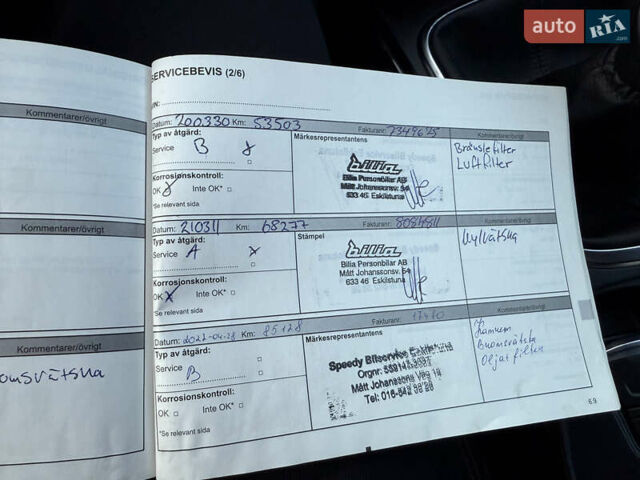 auto RIA .com
SERVICEBEVIS (2/6)
Kommentarer/övrigt
Datum: 200330 Km: 53503 Fakturanr: 2349625
Typ av åtgärd: Märkesrepresentantens Kommentarer/övrigt
Service B
Bilia
Bilia Personbilar AB
Mått Johanssonsv. 54
633 46 Eskilstuna
Bränslefilter
Luftfilter
Korrosionskontroll:
OK Inte OK*
*Se relevant sida
Kommentarer/övrigt
Datum: 210311 Km: 68277 Fakturanr:
Typ av åtgärd: Stämpel Kommentarer/övrigt
Service A
Bilia
Bilia Personbilar AB
Mått Johanssonsv. 54
633 46 Eskilstuna
Kylvätska
Korrosionskontroll:
OK Inte OK*
*Se relevant sida
Kommentarer/övrigt
Datum: 2022-04-28 Km: 85128 Fakturanr: 17470
Typ av åtgärd: Märkesrepresentantens Kommentarer/övrigt
Service B
Speedy Bilservice Eskilstuna
Orgnr:
Mått Johanssons Väg
Tel: 016-542
kamrem
Bromsvätska
Oljas filter
Korrosionskontroll:
OK Inte OK*
*Se relevant sida
6.9